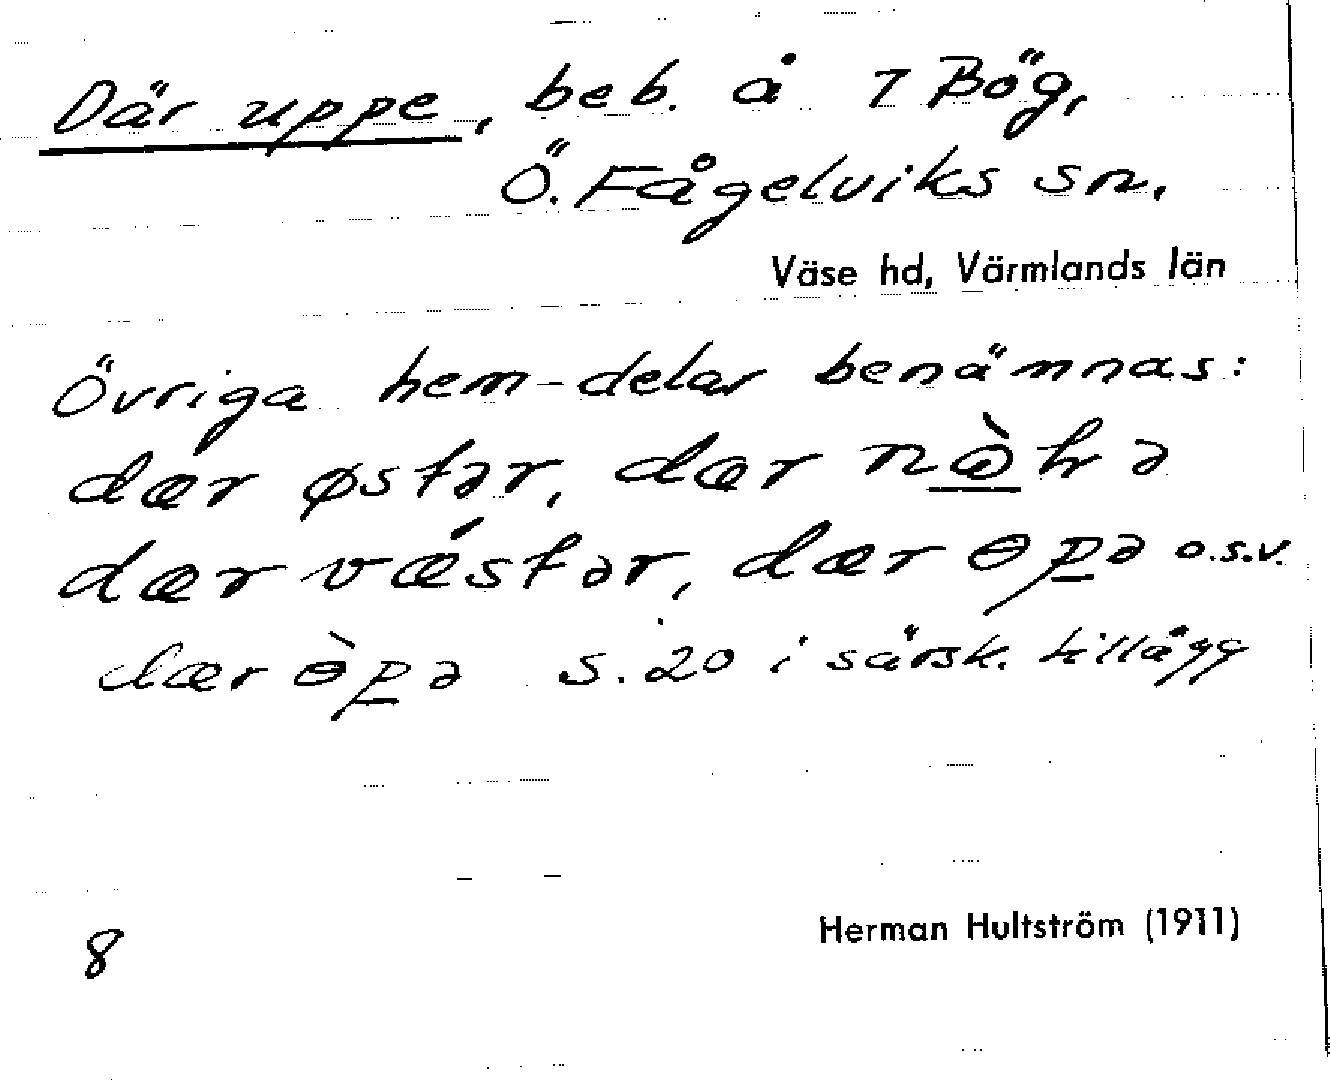 Där uppe, beb. å 7 Bög,
Ö. Fågelviks sn.
Väse hd, Värmlands län
Övriga hem-delar benämnas:
dær østər, dær
dær vǽstər, dær ɵpə o.s.v.
dær ɵ̀pə s. 20 i särsk. tillägg
8
Herman Hultström (1911)